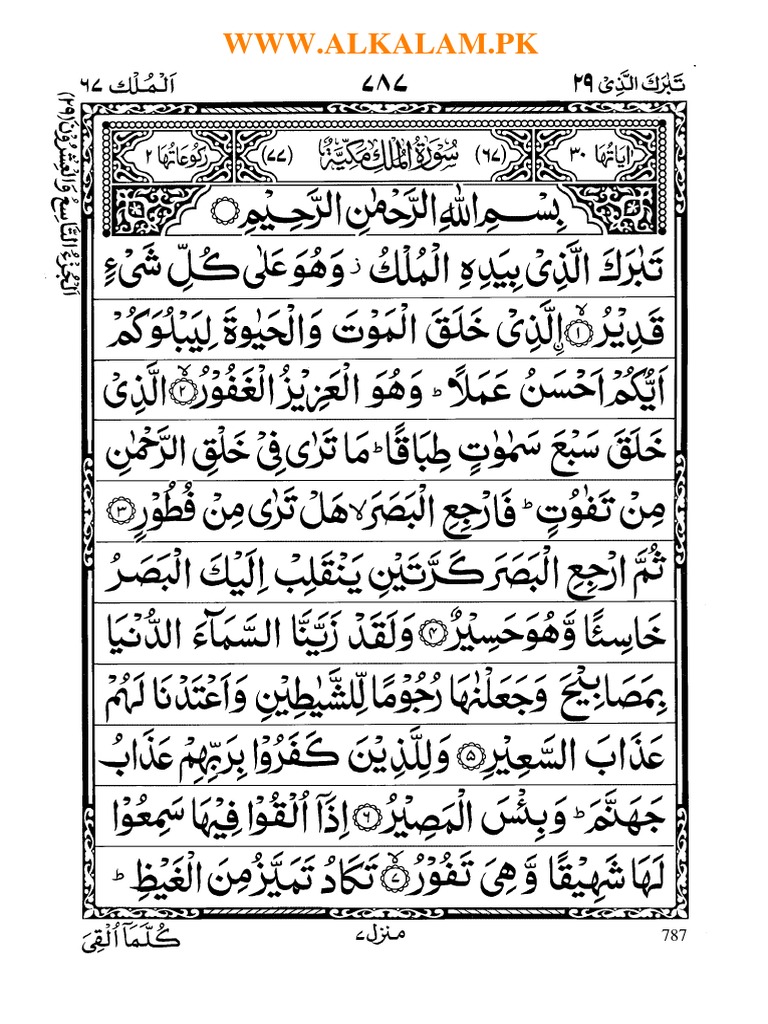 WWW.ALKALAM.PK
تَبٰرَكَ الَّذِیْ ۲۹
۷۸۷
اَلْمُلْك ۶۷
اٰیَاتُهَا ۳۰
(۶۷) سُوْرَةُ الْمُلْكِ مَكِّیَّةٌ (۷۷)
رُكُوْعَاتُهَا ۲
بِسْمِ اللّٰهِ الرَّحْمٰنِ الرَّحِیْمِ ۝
تَبٰرَكَ الَّذِیْ بِیَدِهِ الْمُلْكُ ز وَهُوَ عَلٰی كُلِّ شَیْءٍ
قَدِیْرُ ۝۱ۙ اِ۟لَّذِیْ خَلَقَ الْمَوْتَ وَالْحَیٰوةَ لِیَبْلُوَكُمْ
اَیُّكُمْ اَحْسَنُ عَمَلًا ؕ وَهُوَ الْعَزِیْزُ الْغَفُوْرُ ۝۲ۙ الَّذِیْ
خَلَقَ سَبْعَ سَمٰوٰتٍ طِبَاقًا ؕ مَا تَرٰی فِیْ خَلْقِ الرَّحْمٰنِ
مِنْ تَفٰوُتٍ ؕ فَارْجِعِ الْبَصَرَ لا هَلْ تَرٰی مِنْ فُطُوْرٍ ۝۳
ثُمَّ ارْجِعِ الْبَصَرَ كَرَّتَیْنِ یَنْقَلِبْ اِلَیْكَ الْبَصَرُ
خَاسِئًا وَّهُوَ حَسِیْرٌ ۝۴ وَلَقَدْ زَیَّنَّا السَّمَآءَ الدُّنْیَا
بِمَصَابِیْحَ وَجَعَلْنٰهَا رُجُوْمًا لِّلشَّیٰطِیْنِ وَاَعْتَدْنَا لَهُمْ
عَذَابَ السَّعِیْرِ ۝۵ وَلِلَّذِیْنَ كَفَرُوْا بِرَبِّهِمْ عَذَابُ
جَهَنَّمَ ؕ وَبِئْسَ الْمَصِیْرُ ۝۶ اِذَاۤ اُلْقُوْا فِیْهَا سَمِعُوْا
لَهَا شَهِیْقًا وَّهِیَ تَفُوْرُ ۝۷ۙ تَكَادُ تَمَیَّزُ مِنَ الْغَیْظِ ؕ
اَلْجُزْءُ التَّاسِعُ وَالْعِشْرُوْنَ (۲۹)
787
منزل ۷
كُلَّمَاۤ اُلْقِیَ